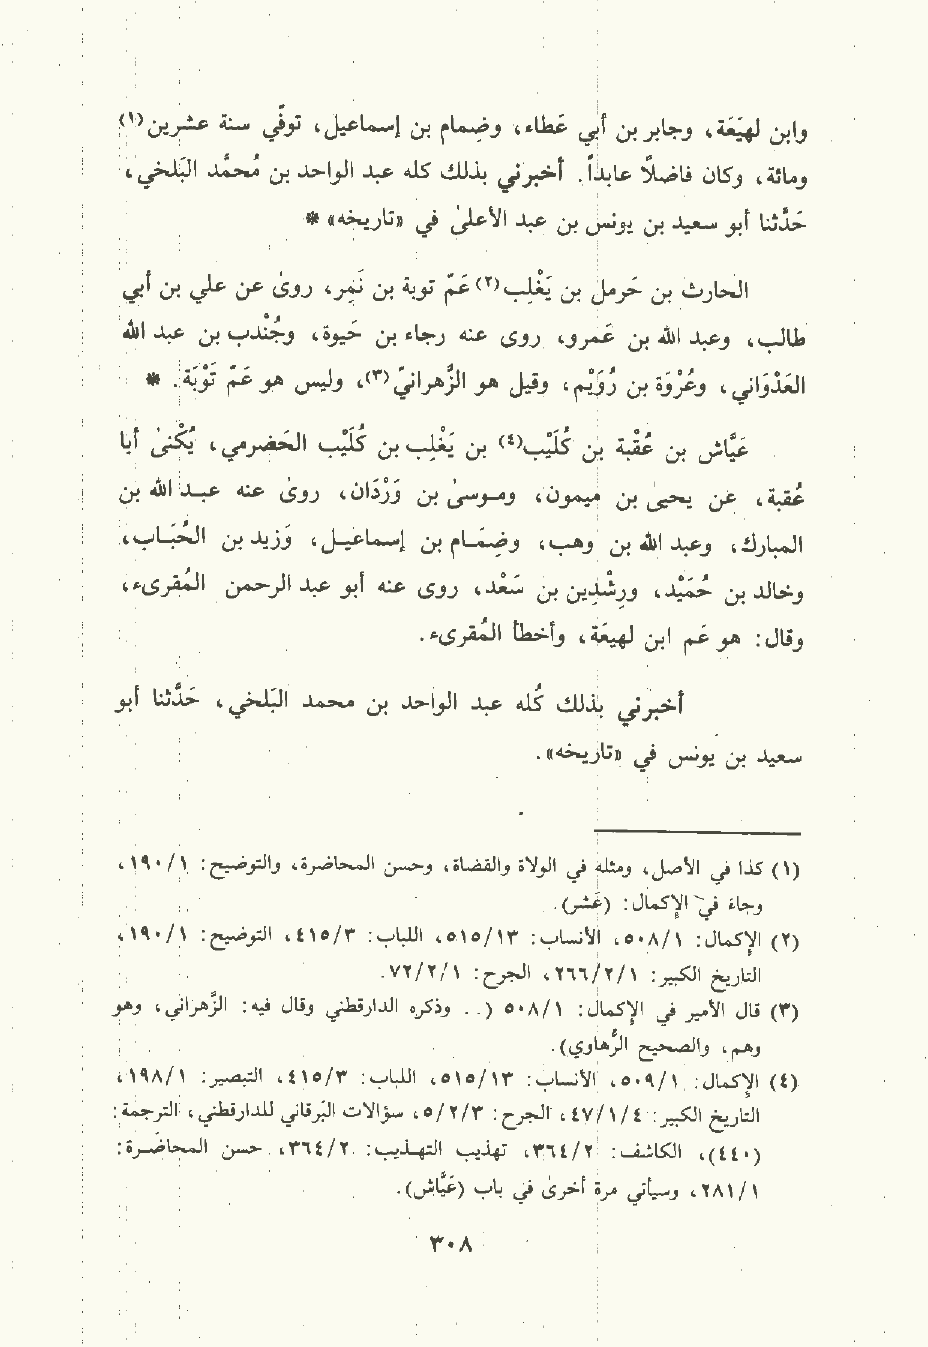 وابن لَهيَعَة، وجابر بن أبي عَطاء، وضِمام بن إسماعيل، توفّي سنة عشرين(١)
ومائة، وكان فاضلاً عابداً. أخبرني بذلك كله عبد الواحد بن مُحمَّد البَلخي،
حَدَّثنا أبو سعيد بن يونس بن عبد الأعلىٰ في «تاريخه» *
الحارث بن حَرمل بن يَغْلِب(٢) عَمّ توبة بن نَمِر، روىٰ عن علي بن أبي
طالب، وعبد الله بن عَمرو، روى عنه رجاء بن حَيوة، وجُنْدب بن عبد الله
العَدَواني، وعُرْوَة بن رُوَيْم، وقيل هو الزَّهرانيّ(٣)، وليس هو عَمّ تَوْبَة. *
عَيَّاش بن عُقْبة بن كُلَيْب(٤) بن يَغْلِب بن كُلَيْب الحَضرمي، يُكْنىٰ أبا
عُقبة، عن يحيىٰ بن ميمون، وموسىٰ بن وَرْدَان، روىٰ عنه عبد الله بن
المبارك، وعبد الله بن وهب، وضِمَام بن إسماعيل، وَزيد بن الحُبَاب،
وخالد بن حُمَيْد، ورِشْدِين بن سَعْد، روى عنه أبو عبد الرحمن المُقرىء،
وقال: هو عَم ابن لهيَعَة، وأخطأ المُقرىء.
أخبرني بذلك كُله عبد الواحد بن محمد البَلخي، حَدَّثنا أبو
سعيد بن يونس في «تاريخه».
(١) كذا في الأصل، ومثله في الولاة والقضاة، وحسن المحاضرة، والتوضيح: ١/ ١٩٠،
وجاء في الإكمال: (عَشر).
(٢) الإكمال: ١/ ٥٠٨، الأنساب: ١٣/ ٥١٥، اللباب: ٣/ ٤١٥، التوضيح: ١/ ١٩٠،
التاريخ الكبير: ١/ ٢/ ٢٦٦، الجرح: ١/ ٢/ ٧٢.
(٣) قال الأمير في الإكمال: ١/ ٥٠٨ (.. وذكره الدارقطني وقال فيه: الزَّهراني، وهو
وهم، والصحيح الرُّهاوي).
(٤) الإكمال: ١/ ٥٠٩، الأنساب: ١٣/ ٥١٥، اللباب: ٣/ ٤١٥، التبصير: ١/ ١٩٨،
التاريخ الكبير: ٤/ ١/ ٤٧، الجرح: ٣/ ٢/ ٥، سؤالات البَرقاني للدارقطني، الترجمة:
(٤٤٠)، الكاشف: ٢/ ٣٦٤، تهذيب التهذيب: ٢/ ٣٦٤، حسن المحاضرة:
١/ ٢٨١، وسيأتي مرة أخرىٰ في باب (عَيَّاش).
٣٠٨